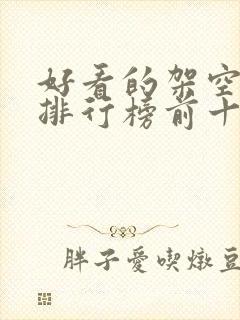 好看的架空
排行榜前十
胖子愛喫燉豆